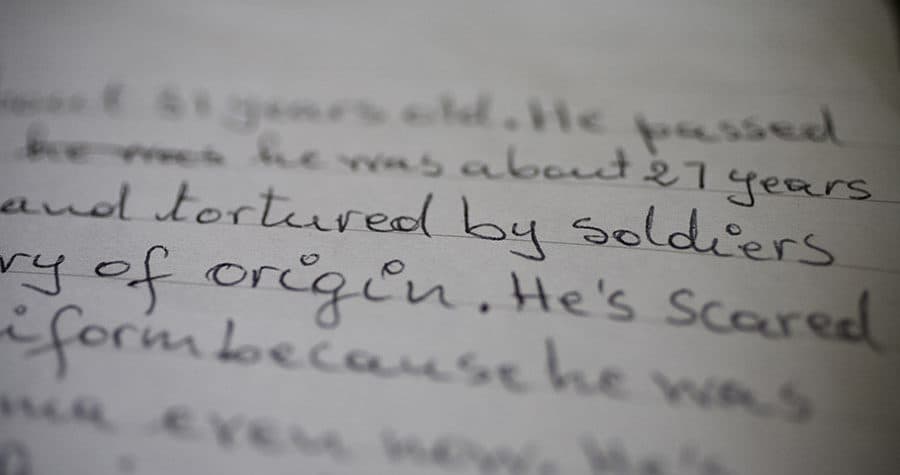 years old. He passed
he was about 27 years
and tortured by soldiers
ry of origin. He's scared
iform because he was
even now. He's